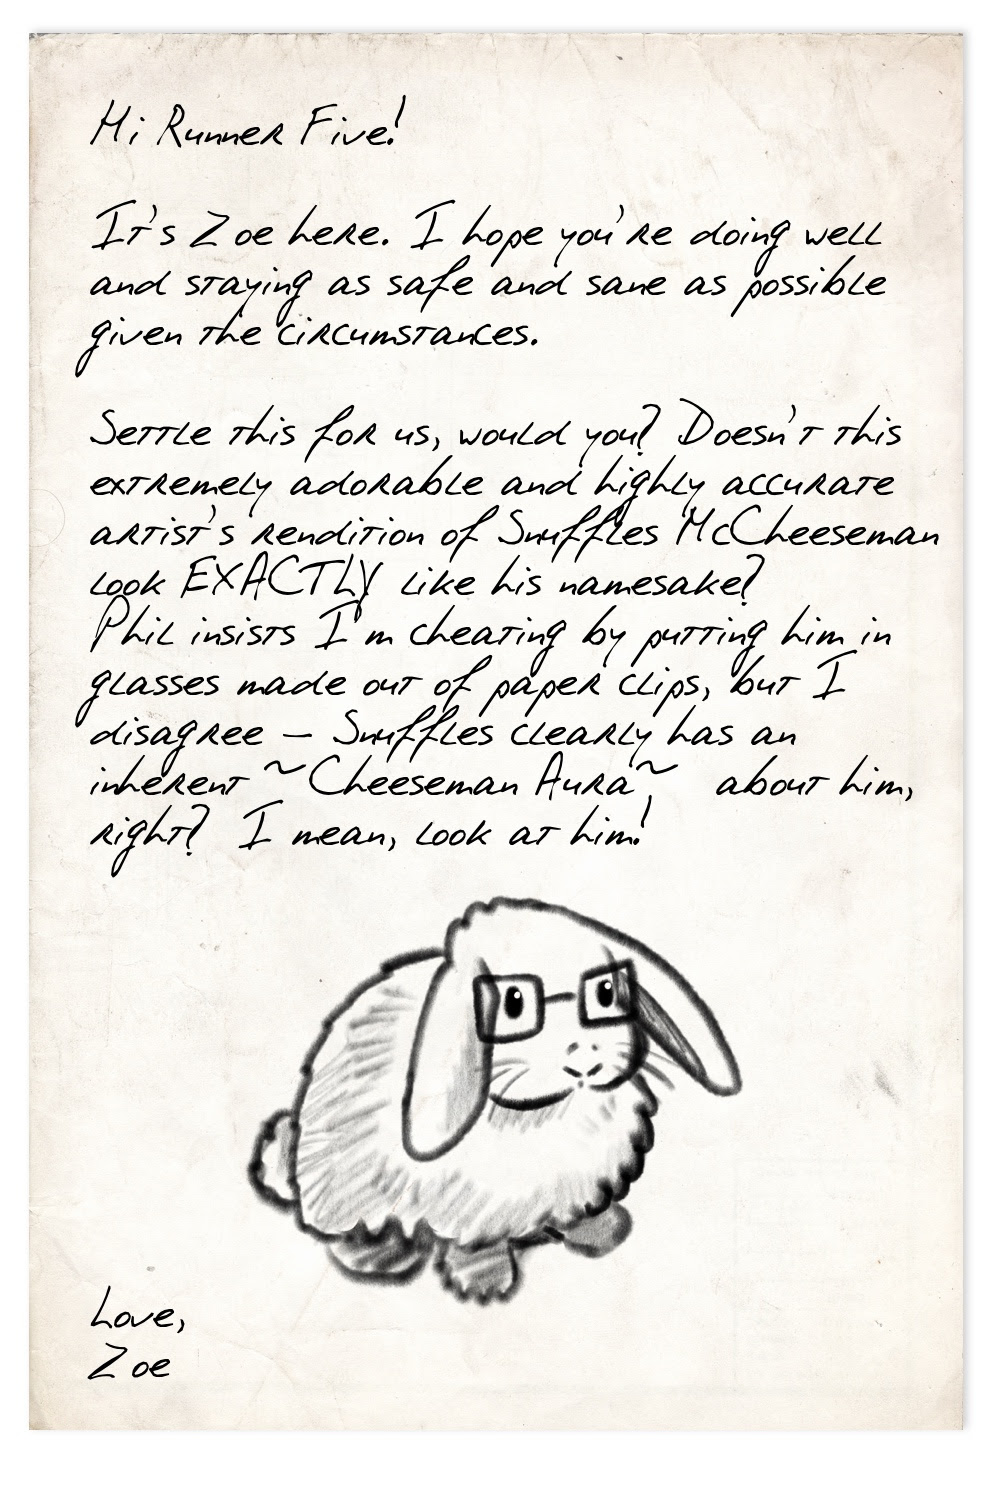 Hi Runner Five!
It's Zoe here. I hope you're doing well
and staying as safe and sane as possible
given the circumstances.
Settle this for us, would you? Doesn't this
extremely adorable and highly accurate
artist's rendition of Snuffles McCheeseman
look EXACTLY like his namesake?
Phil insists I'm cheating by putting him in
glasses made out of paper clips, but I
disagree – Snuffles clearly has an
inherent ~Cheeseman Aura~ about him,
right? I mean, look at him!
Love,
Zoe